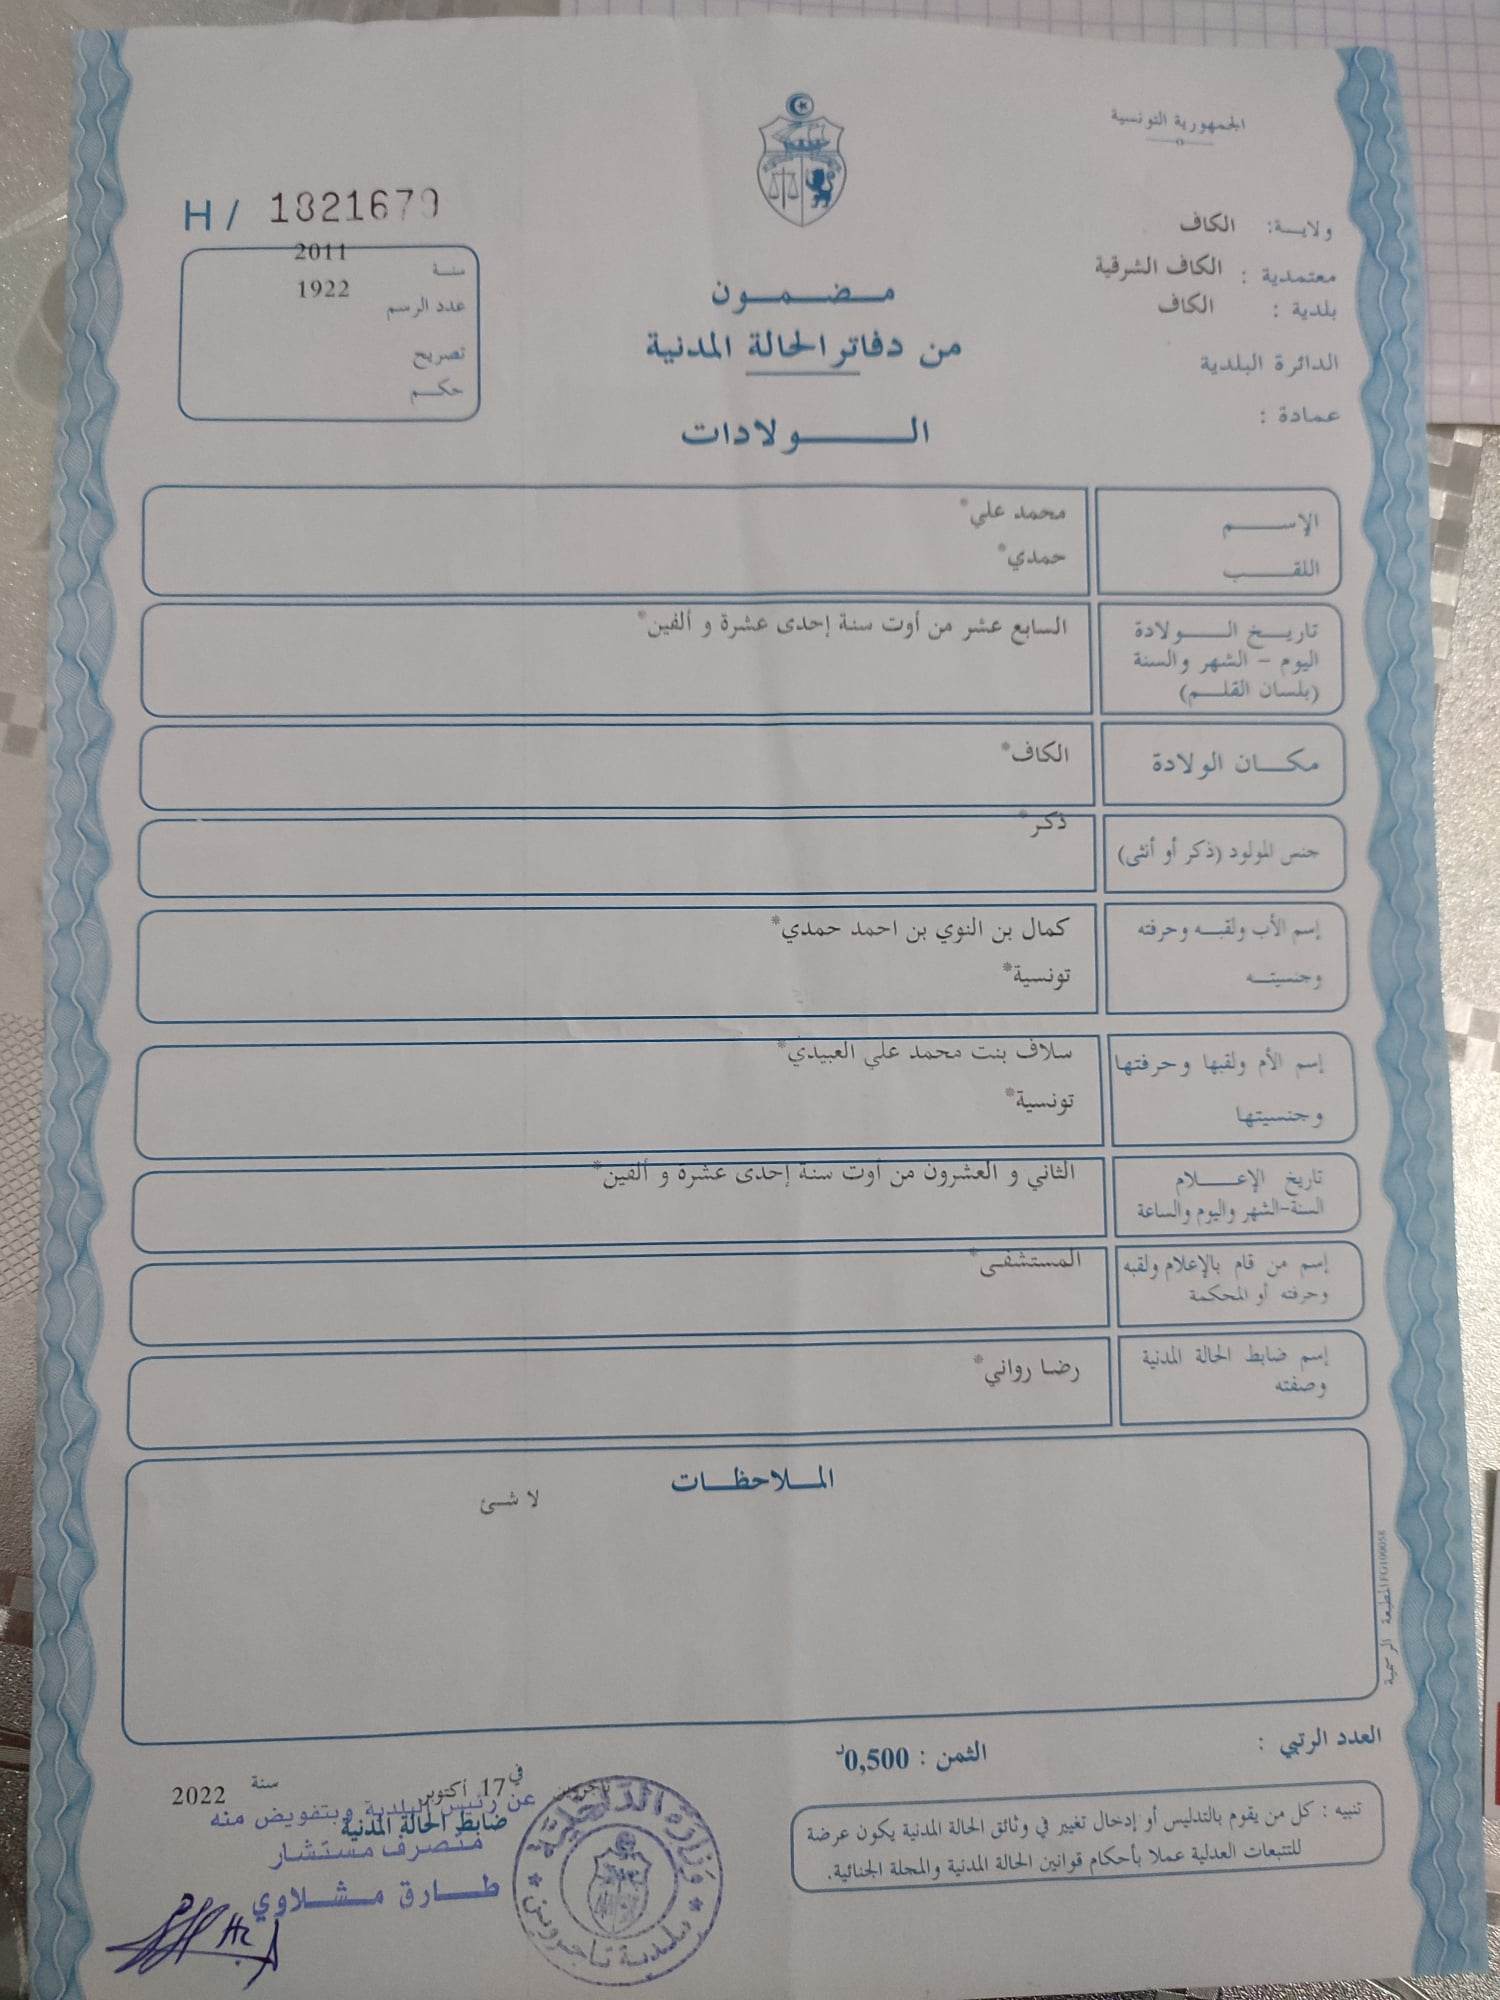 الجمهورية التونسية
H / 1821679
ولايـــة: الكاف
معتمدية : الكاف الشرقية
بلدية : الكاف
الدائرة البلدية
عمادة :
سنـة 2011
عدد الرسم 1922
تصريح
حكــم
مـــضــمــــون
من دفاتر الحالة المدنية
الـــــــولادات
الإســــــم محمد علي*
اللقــــــب حمدي*
تاريــخ الــــولادة السابع عشر من أوت سنة إحدى عشرة و ألفين*
اليوم - الشهر والسنة
(بلسان القلـــم)
مكــــان الولادة الكاف*
جنس المولود (ذكر أو أنثى) ذكر*
إسم الأب ولقبـــه وحرفته كمال بن النوي بن احمد حمدي*
وجنسيتـــه تونسية*
إسم الأم ولقبها وحرفتها سلاف بنت محمد علي العبيدي*
وجنسيتها تونسية*
تاريخ الإعــــــلام الثاني و العشرون من أوت سنة إحدى عشرة و ألفين*
السنة-الشهر واليوم والساعة
إسم من قام بالإعلام ولقبه المستشفى*
وحرفته أو المحكمة
إسم ضابط الحالة المدنية رضا رواني*
وصفته
المــلاحظــــات
لا شئ
المطبعة الرسمية F0100058
العدد الرتبي :
الثمن : 0,500د
تنبيه : كل من يقوم بالتدليس أو إدخال تغيير في وثائق الحالة المدنية يكون عرضة
للتتبعات العدلية عملا بأحكام قوانين الحالة المدنية والمجلة الجنائية.
تاجروين في 17 أكتوبر سنة 2022
عن رئيس البلدية وبتفويض منه
ضابط الحالة المدنية
متصرف مستشار
طــارق مــشــلاوي
وزارة الداخلية
بلدية تاجروين